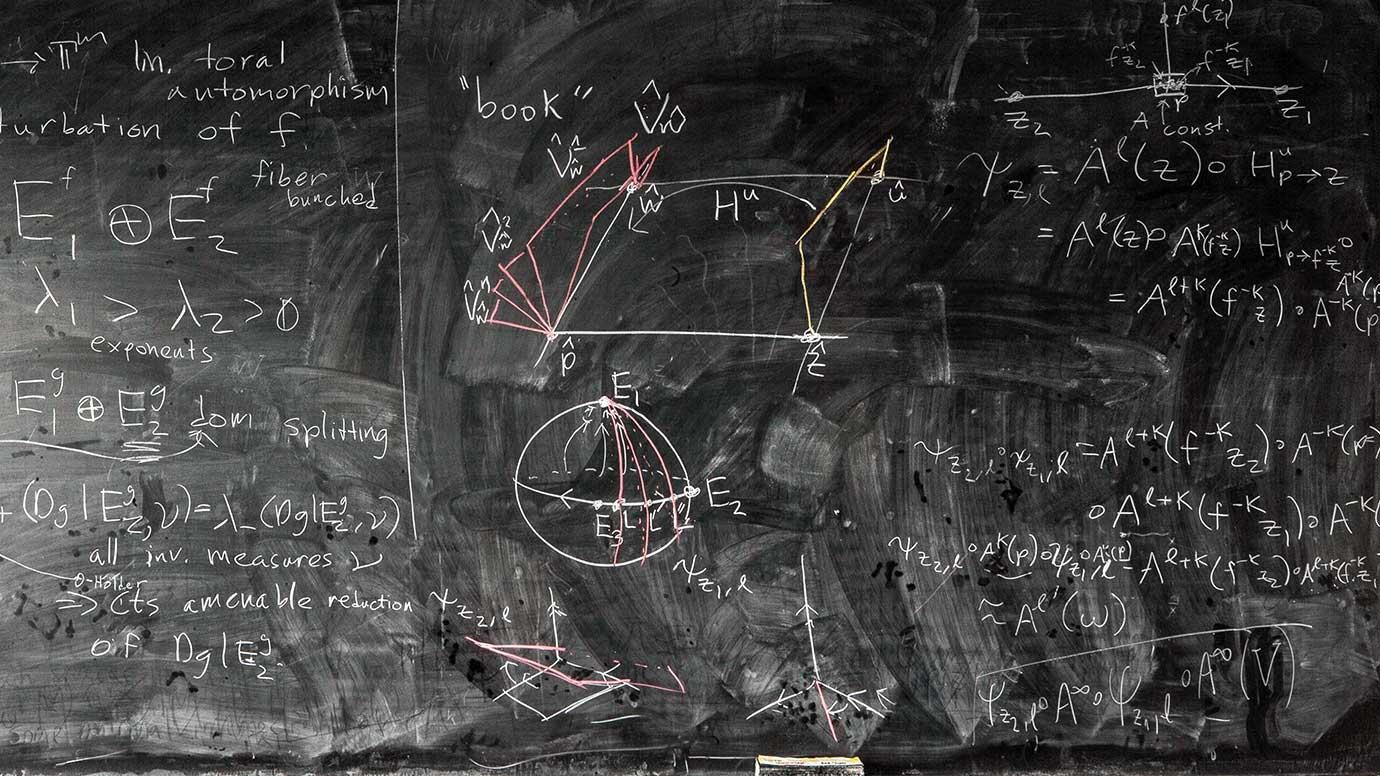 → 𝕋ᵐ lin. toral
automorphism
turbation of f.
E₁ᶠ ⊕ E₂ᶠ fiber
bunched
λ₁ > λ₂ > 0
exponents
E₁ᵍ ⊕ E₂ᵍ dom splitting
+ (Dg|E₂ᵍ, ν) = λ_(Dg|E₂ᵍ, ν)
all inv. measures ν
θ-Holder
⇒ cts amenable reduction
of Dg|E₂ᵍ.
"book"
Hᵘ
p̂
ẑ
ŵ
û
E₁
E₂
E₃
ψ_{z₁,l}
ψ_{z₂,l}
fˡ(z₁)
f^{-k}_{z₂} f^{-k}_{z₁}
z₂ p z₁
A const.
ψ_{z,l} = Aˡ(z) ∘ Hᵘ_{p→z}
= Aˡ(z) ∘ Aᵏ(f^{-k}_z) Hᵘ_{p→f^{-k}_z}
= A^{l+k}(f^{-k}_z) ∘ A^{-k}(p
ψ_{z₂,l} ∘ ψ_{z₁,l} = A^{l+k}(f^{-k}z₂) ∘ A^{-k}(p
∘ A^{l+k}(f^{-k}z₁) ∘ A^{-k}(
≈ Aˡ'(ω)
ψ_{z₂,l} ∘ A^∞ ∘ ψ_{z₁,l} ∘ A^∞(V)